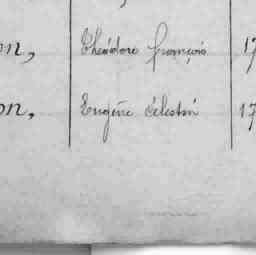 on, Théodore françois 17
on, Eugène Célestin 17